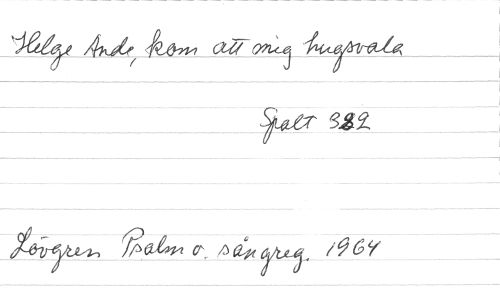 Helge Ande, kom att mig hugsvala
Spalt 382
Lövgren Psalm o. sångreg. 1964